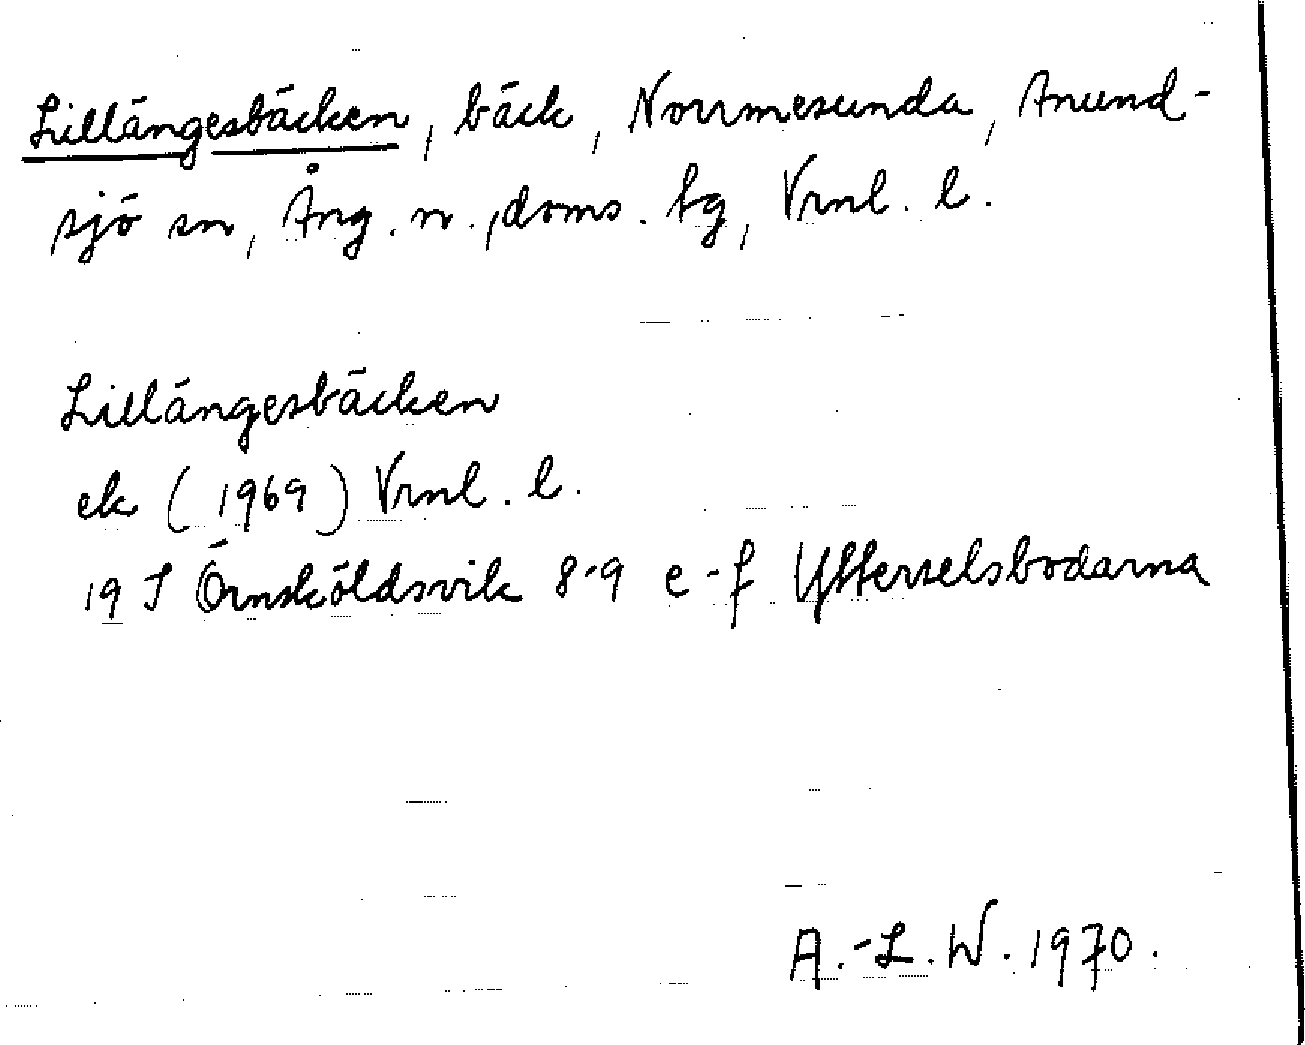 Lillängesbäcken, bäck, Norrmesunda, Anund-
sjö sn, Ång. n., doms. tg, Vrnl. l.
Lillängesbäcken
ek (1969) Vrnl. l.
19 J Örnsköldsvik 8-9 e-f Ytterselsbodarna
A.-L. W. 1970.